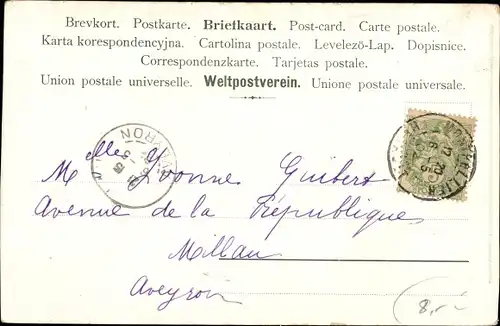 Brevkort. Postkarte. Briefkaart. Post-card. Carte postale.
Karta korespondencyjna. Cartolina postale. Levelező-Lap. Dopisnice.
Correspondenzkarte. Tarjetas postale.
Union postale universelle. Weltpostverein. Unione postale universale.
Melle Yvonne Guibert
Avenue de la République
Millau
Aveyron
8,-